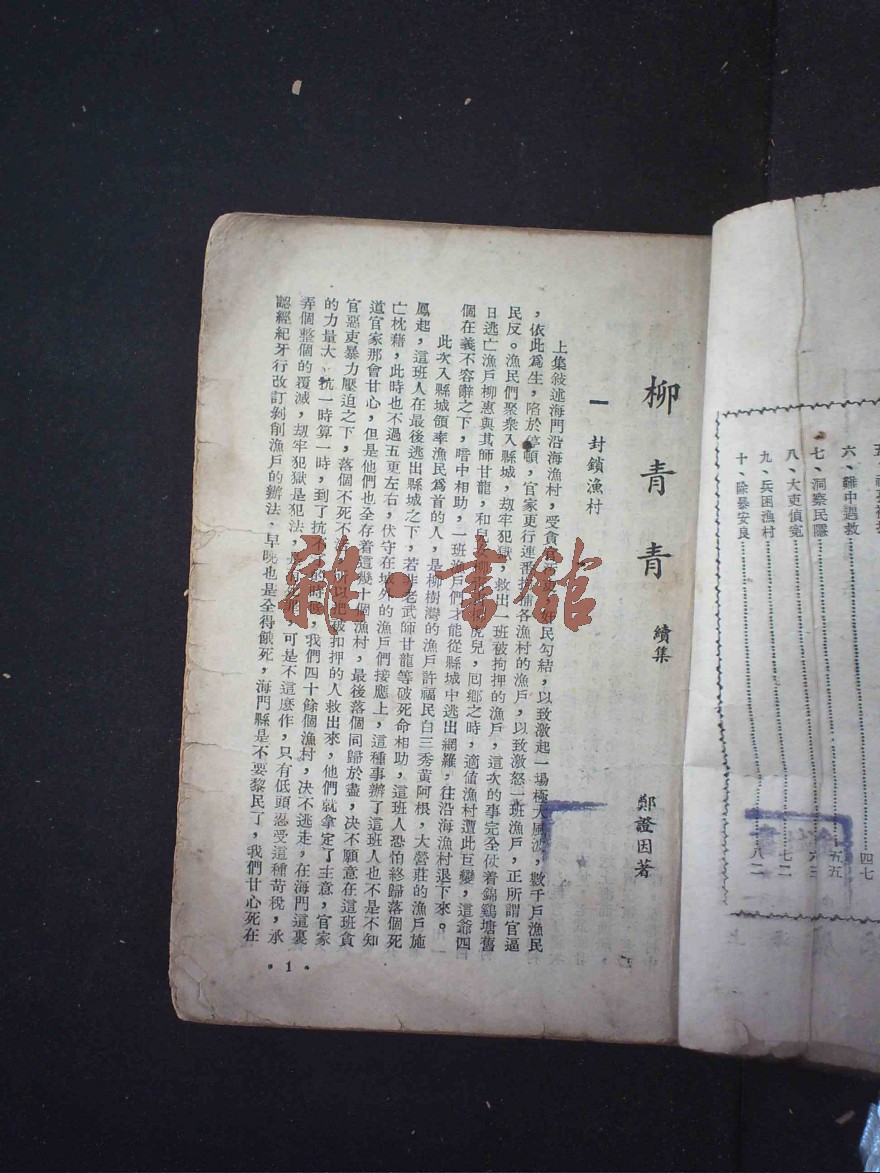 五、
六、難中遇救⋯⋯四七
七、洞察民隱⋯⋯五五
八、大吏偵寃⋯⋯六三
九、兵困漁村⋯⋯七二
十、除暴安良⋯⋯八二
柳青青 續集
鄭證因著
一 封鎖漁村
上集敍述海門沿海漁村，受貪官 奸民勾結，以致激起一塲極大風波，數千戶漁民
，依此爲生，陷於停頓，官家更行連番搜捕各漁村的漁戶，以致激怒一班漁戶，正所謂官逼
民反。漁民們聚衆入縣城，刼牢犯獄，救出一班被拘押的漁戶，這次的事完全仗着錦鷄塘舊
日逃亡漁戶柳惠與其師甘龍，和兒女柳 虎兒，囘鄉之時，適値漁村遭此巨變，這爺四
個在義不容辭之下，暗中相助，一班漁戶們才能從縣城中逃出網羅，往沿海漁村退下來。
此次入縣城領率漁民爲首的人，是柳樹灣的漁戶許福民白三秀黃阿根，大營莊的漁戶施
鳳起，這班人在最後逃出縣城之下，若非老武師甘龍等破死命相助，這班人恐怕終歸落個死
亡枕藉，此時也不過五更左右，伏守在城外的漁戶們接應上，這種事辦了這班人也不是不知
道官家那會甘心，但是他們也全存着這幾十個漁村，最後落個同歸於盡，决不願意在這班貪
官惡吏暴力壓迫之下，落個不死不活，所以把被扣押的人救出來，他們就拿定了主意，官家
的力量大，抗一時算一時，到了抗不 的時候，我們四十餘個漁村，决不逃走，在海門這裏
弄個整個的覆滅，刼牢犯獄是犯法， 可是不這麽作，只有低頭忍受這種苛稅，承
認經紀牙行改訂剝創漁戶的辦法，早晚也是全得餓死，海門縣是不要黎民了，我們甘心死在
·1·
雜·書館